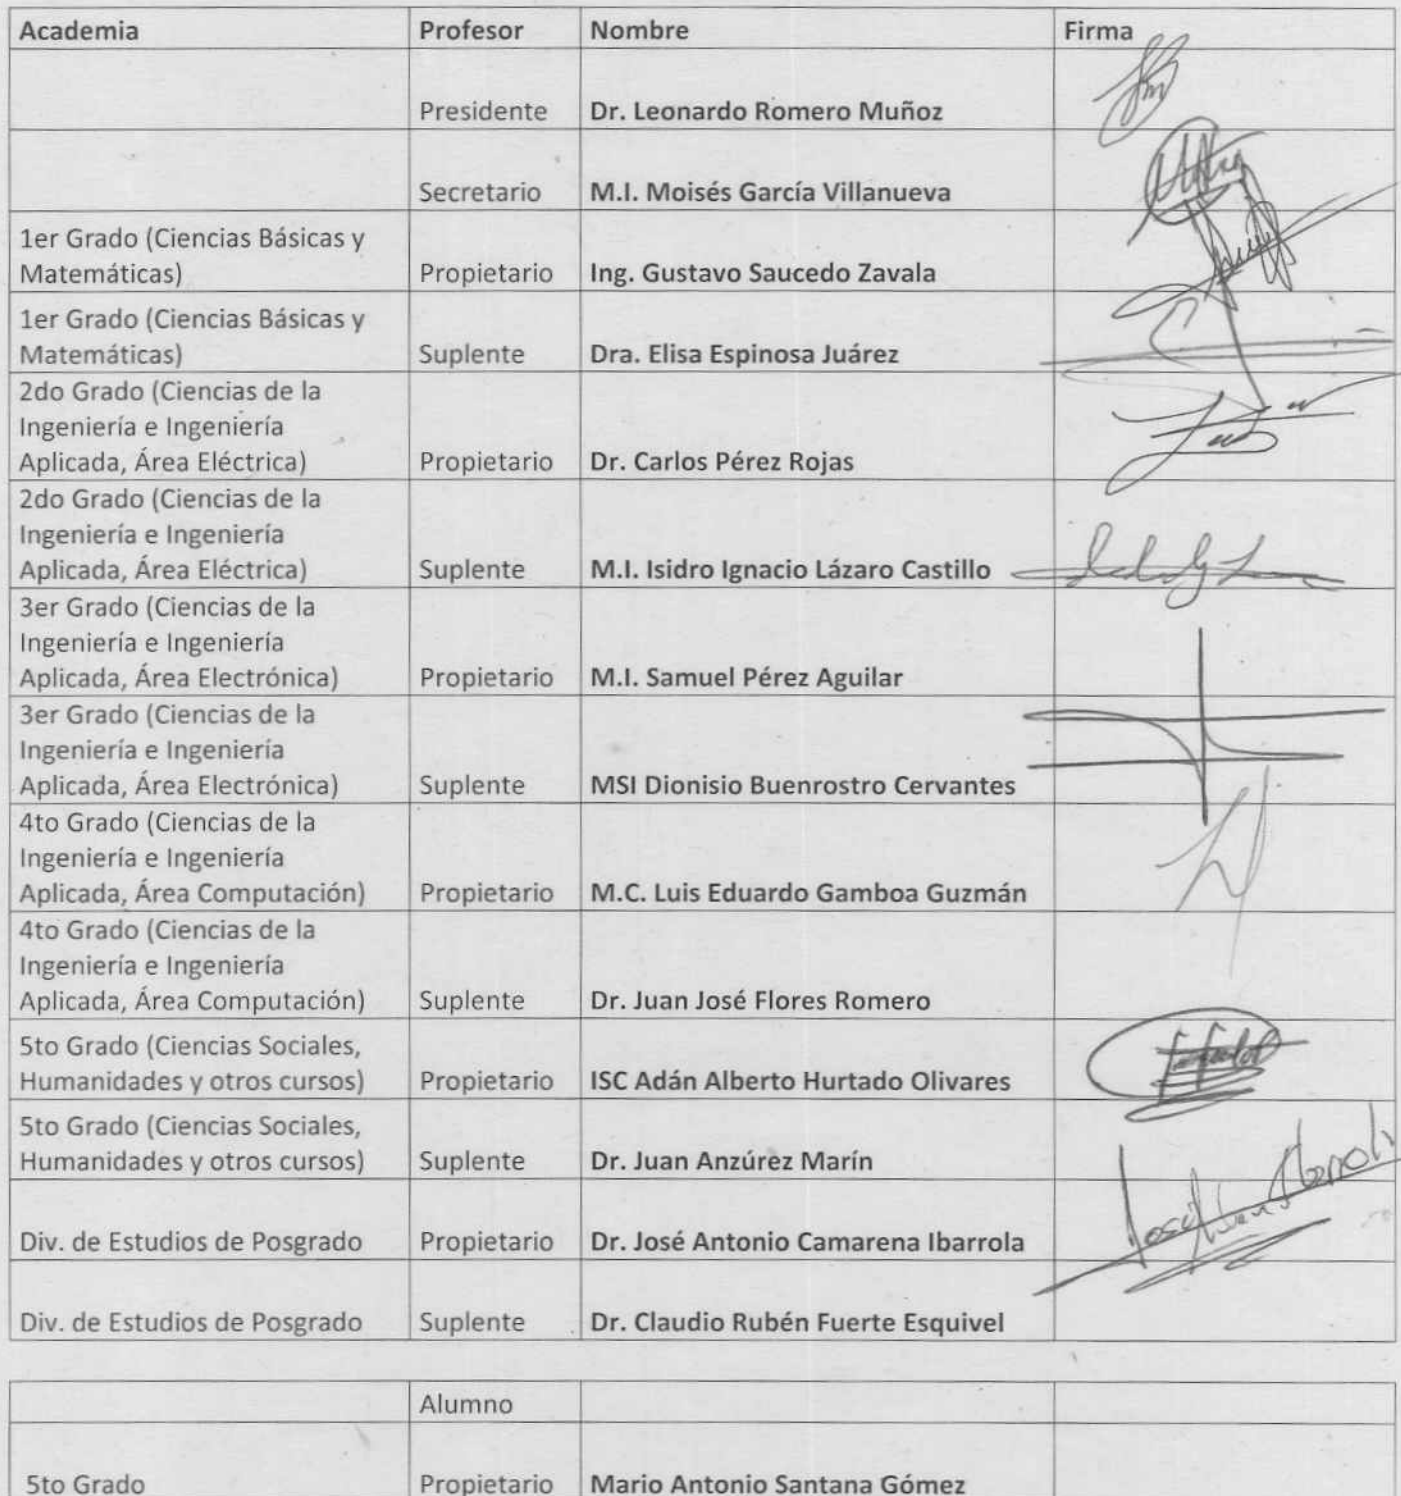 Academia Profesor Nombre Firma
Presidente Dr. Leonardo Romero Muñoz
Secretario M.I. Moisés García Villanueva
1er Grado (Ciencias Básicas y
Matemáticas) Propietario Ing. Gustavo Saucedo Zavala
1er Grado (Ciencias Básicas y
Matemáticas) Suplente Dra. Elisa Espinosa Juárez
2do Grado (Ciencias de la
Ingeniería e Ingeniería
Aplicada, Área Eléctrica) Propietario Dr. Carlos Pérez Rojas
2do Grado (Ciencias de la
Ingeniería e Ingeniería
Aplicada, Área Eléctrica) Suplente M.I. Isidro Ignacio Lázaro Castillo
3er Grado (Ciencias de la
Ingeniería e Ingeniería
Aplicada, Área Electrónica) Propietario M.I. Samuel Pérez Aguilar
3er Grado (Ciencias de la
Ingeniería e Ingeniería
Aplicada, Área Electrónica) Suplente MSI Dionisio Buenrostro Cervantes
4to Grado (Ciencias de la
Ingeniería e Ingeniería
Aplicada, Área Computación) Propietario M.C. Luis Eduardo Gamboa Guzmán
4to Grado (Ciencias de la
Ingeniería e Ingeniería
Aplicada, Área Computación) Suplente Dr. Juan José Flores Romero
5to Grado (Ciencias Sociales,
Humanidades y otros cursos) Propietario ISC Adán Alberto Hurtado Olivares
5to Grado (Ciencias Sociales,
Humanidades y otros cursos) Suplente Dr. Juan Anzúrez Marín
Div. de Estudios de Posgrado Propietario Dr. José Antonio Camarena Ibarrola
Div. de Estudios de Posgrado Suplente Dr. Claudio Rubén Fuerte Esquivel
Alumno
5to Grado Propietario Mario Antonio Santana Gómez